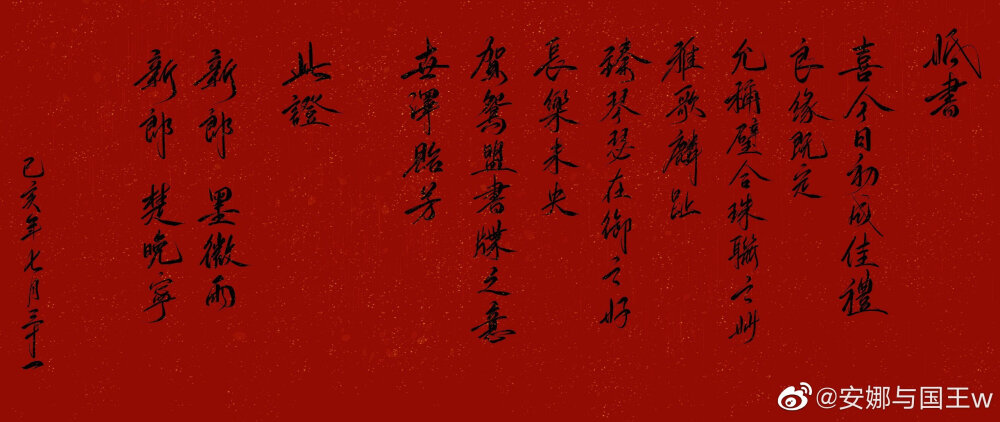 婚書
喜今日初成佳禮
良緣既定
允稱璧合珠聯之妙
雅歌麟趾
臻琴瑟在御之好
長樂未央
賀鴛盟書牒之意
世澤貽芳
此證
新郎 墨微雨
新郎 楚晚寧
己亥年七月三十一
@安娜与国王w